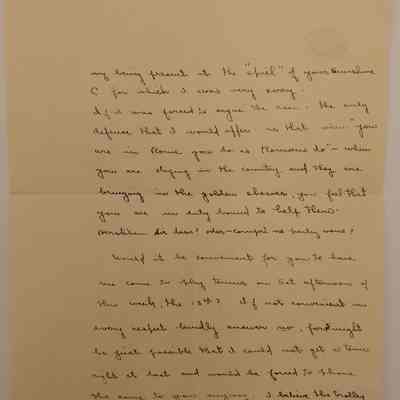 my being present at the "spiel" of your
C for which I was very sorry.
If I was forced to argue the case, the only
defense that I would offer is that when "you
are in Rome you do as Romans do" - when
you are in the country and they are
bringing in the golden sheaves, you feel that
you are in duty bound to help them.

Would it be convenient for you to have
me come to play tennis on Sat afternoon of
this week, the 13th? If not convenient in
every respect kindly answer no, for
be just possible that I could not get a
right at last and would be forced to phone
the same to you anyway. I believe the trolley